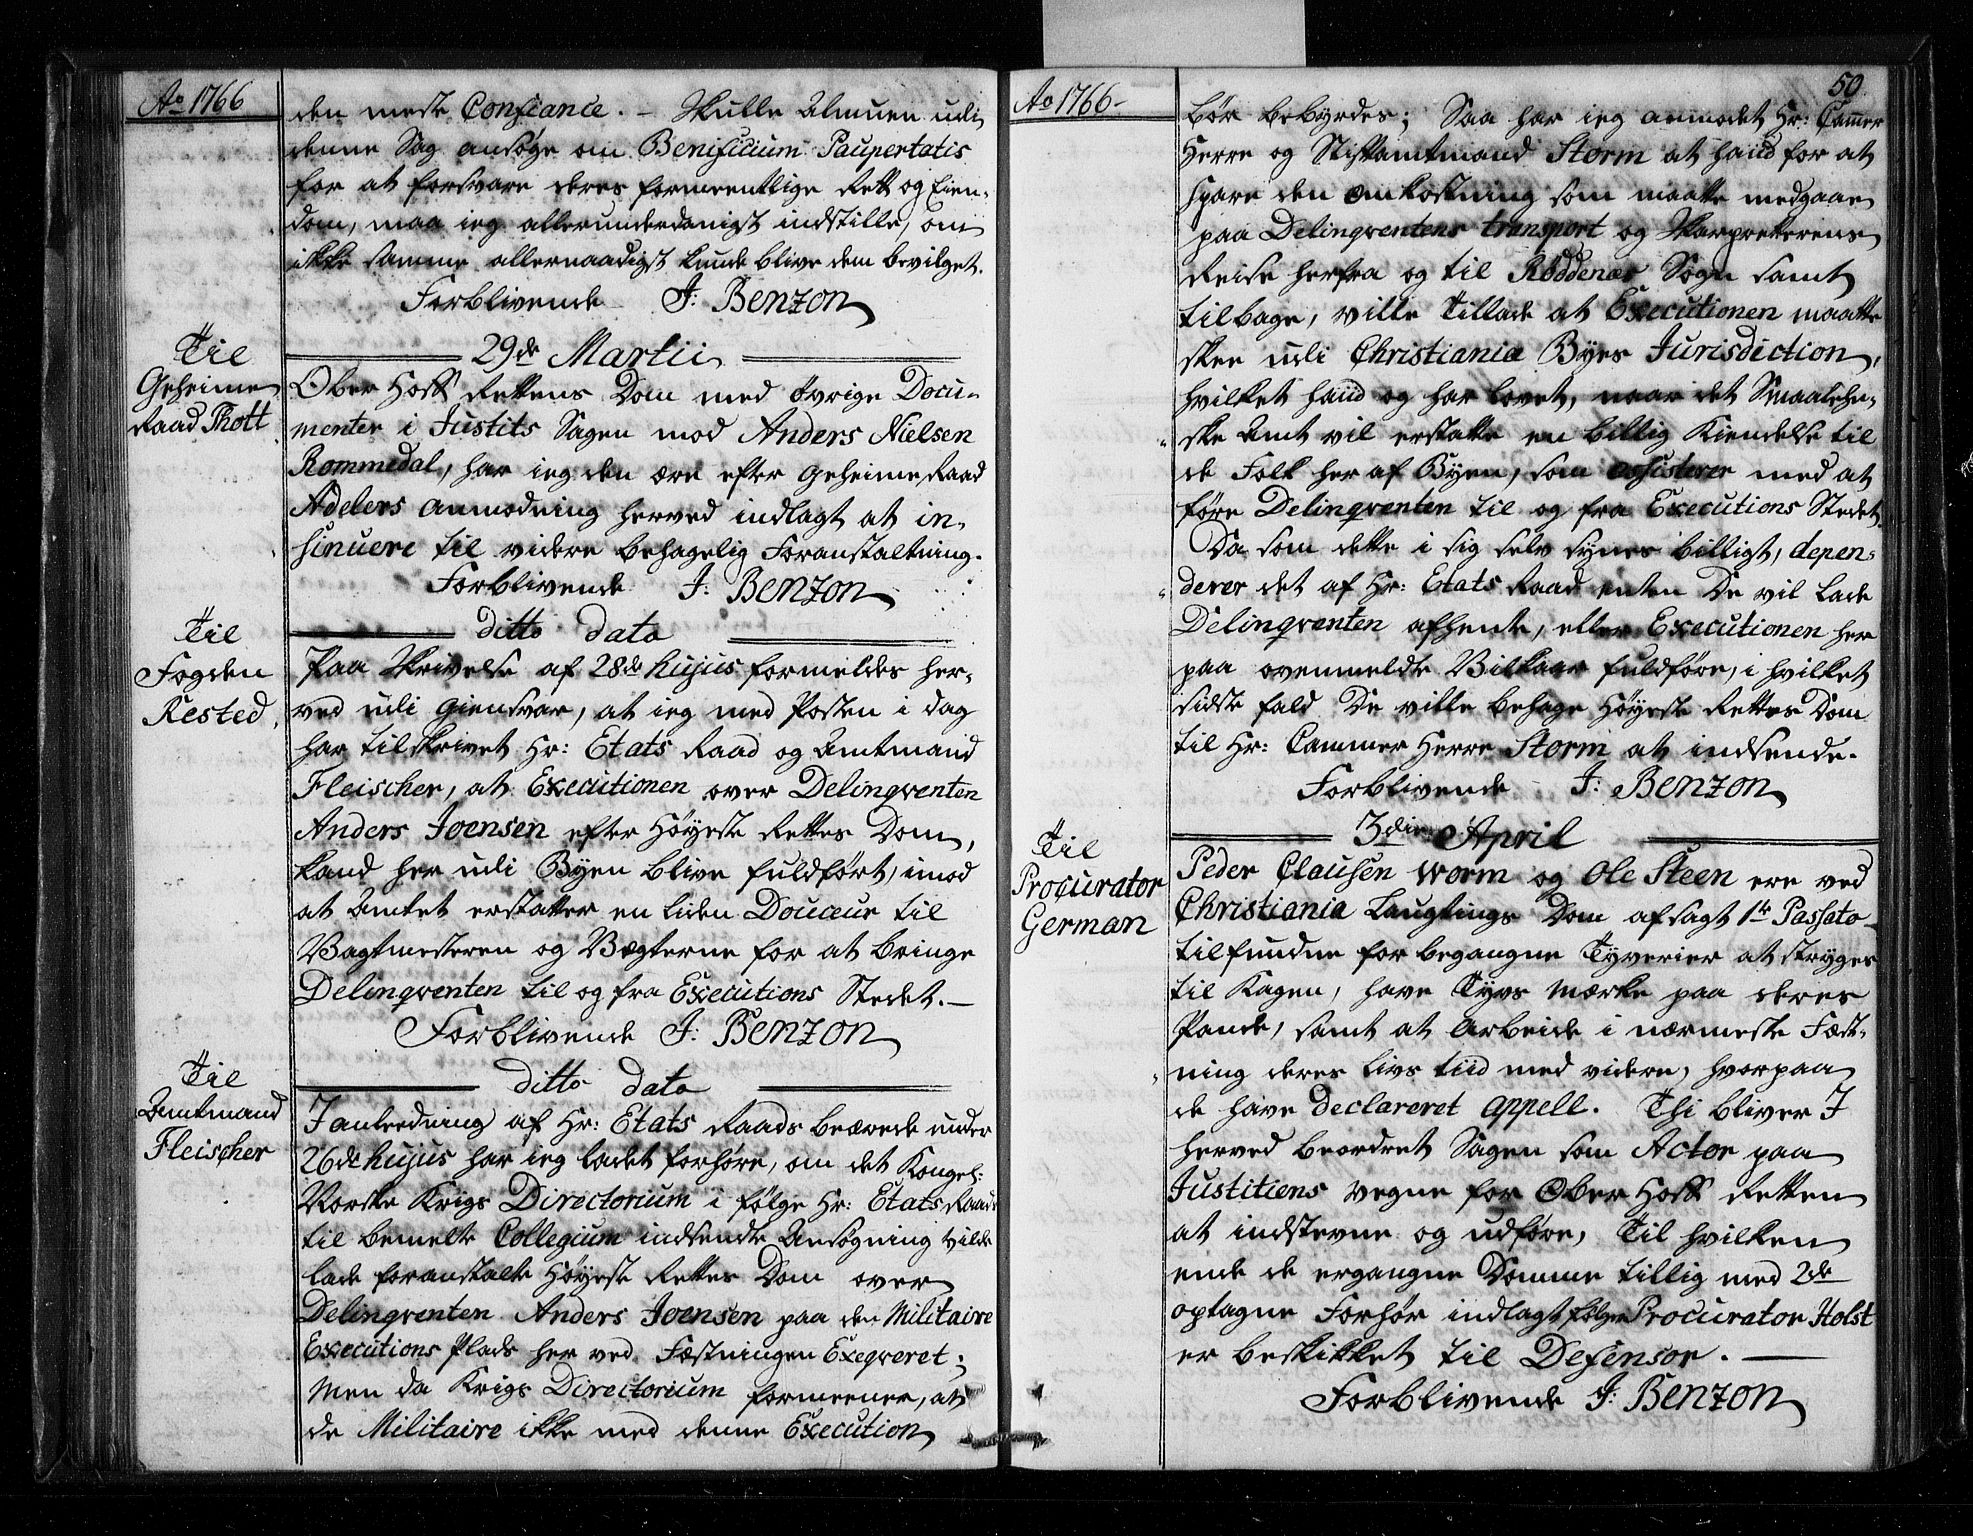 Ao 1766
den meste Confiance. – Skulle Almuen udi
denne Sag ansøge om Benificium Paupertatis
for at forsvare deres formeentlige Rett og Eien-
dom, maa ieg allerunderdanigst indstille, om
ikke samme allernaadigst kunde blive dem bevilget.
Forblivende J: Benzon
29de Martii
Til
Geheime
Raad Thott
Ober Hoff Rettens Dom med øvrige Docu-
menter i Justits Sagen mod Anders Nielsen
Rommedal, har ieg den ære efter Geheime Raad
Adelers anmodning herved indlagt at in-
sinuere til videre behagelig Foranstaltning.
Forblivende J: Benzon
ditto dato
Til
Fogden
Rested
Paa Skrivelse af 28de hujus formeldes her-
ved udi Giensvar, at ieg med Posten i dag
har tilskrivet Hr: Etats Raad og Amtmand
Fleischer, at Executionen over Delinqventen
Anders Joensen efter Høyeste Rettes Dom,
kand her udi Byen blive fuldført, imod
at Amtet erstatter en liden Douceur til
Vagtmesteren og Vægterne for at bringe
Delinqventen til og fra Executions Stedet. –
Forblivende J: Benzon
ditto dato
Til
Amtmand
Fleischer
I anledning af Hr: Etats Raads beærede under
26de hujus har ieg ladet forhøre, om det Kongel:
Norske Krigs Directorium i følge Hr: Etats Raads
til bemelte Collegium indsendte Ansøgning vilde
lade foranstalte Høyeste Rettes Dom over
Delinqventen Anders Joensen paa den Militaire
Executions Plads her ved Fæstningen Exeqveret;
Men da Krigs Directorium formeener, at
de Militaire ikke med denne Execution
Ao 1766 –
50
bør bebyrdes; Saa har ieg anmodet Hr: Cammer
Herre og Stiftamtmand Storm at hand for at
spare den omkostning som maatte medgaae
paa Delinqventens transport og Skarpretterens
Reise herfra og til Røddenæs Sogn samt
tilbage, ville tillade at Executionen maatte
skee udi Christiania Byes Jurisdiction,
hvilket hand og har lovet, naar det Smaalehn-
ske Amt vil erstatte en billig Kiendelse til
de Folk her af Byen, som assisterer med at
føre Delinqventen til og fra Executions Stedet.
Da som dette i sig selv synes billigt, depen-
derer det af Hr: Etats Raad enten De vil lade
Delinqventen afhente, eller Executionen her
paa ovenmeldte Vilkaar fuldføre, i hvilket
sidste fald De ville behage Høyeste Rettes Dom
til Hr: Cammer Herre Storm at indsende.
Forblivende J: Benzon
3die April
Til
Procurator
German
Peder Clausen Worm og Ole Steen ere ved
Christiania Laugtings Dom afsagt 1te Passato
tilfundne for begangne Tyverier at stryges
til Kagen, have Tyvs Mærke paa deres
Pande, samt at Arbeide i nærmeste Fæst-
ning deres livs tiid med videre, hvorpaa
de have declareret appell. Thi bliver I
herved beordret Sagen som Actor paa
Justitiens vegne for Ober Hoff Retten
at indstevne og udføre, Til hvilken
ende de ergangne Domme tillig med 2de
optagne Forhør indlagt følger Procurator Holst
er beskikket til Defensor. –
Forblivende J: Benzon